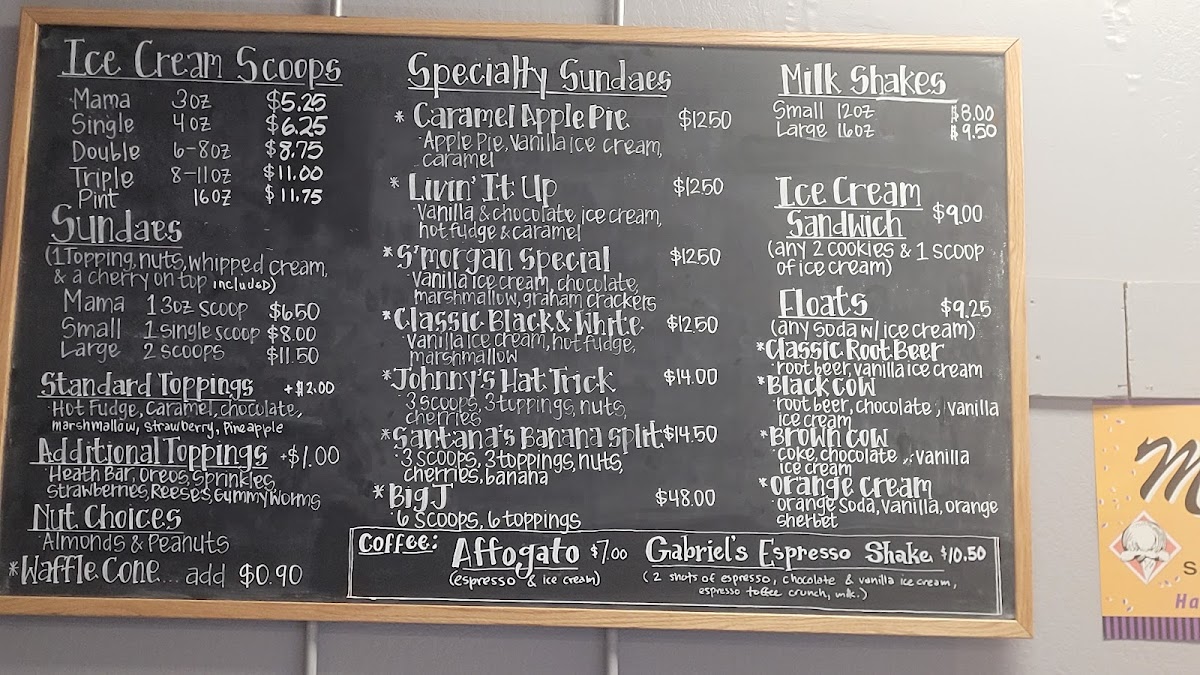 Ice Cream Scoops
Mama 3oz $5.25
Single 4oz $6.25
Double 6-8oz $8.75
Triple 8-11oz $11.00
Pint 16oz $11.75
Sundaes
(1 Topping, nuts, whipped cream,
& a cherry on top included)
Mama 1 3oz scoop $6.50
Small 1 single scoop $8.00
Large 2 scoops $11.50
Standard Toppings +$2.00
Hot Fudge, Caramel, chocolate,
marshmallow, strawberry, Pineapple
Additional Toppings +$1.00
Heath Bar, Oreos, Sprinkles,
Strawberries, Reeses, Gummy Worms
Nut Choices
Almonds & Peanuts
*Waffle Cone... add $0.90
Specialty Sundaes
* Caramel Apple Pie $12.50
Apple Pie, Vanilla ice cream,
caramel
* Livin' It Up $12.50
Vanilla & chocolate ice cream,
hot fudge & caramel
*S'morgan Special $12.50
Vanilla ice cream, chocolate,
marshmallow, graham crackers
*Classic Black & White $12.50
Vanilla ice cream, hot fudge,
marshmallow
*Johnny's Hat Trick $14.00
3 scoops, 3 toppings, nuts,
cherries
*Santana's Banana Split $14.50
3 scoops, 3 toppings, nuts,
cherries, banana
*Big J $48.00
6 scoops, 6 toppings
Milk Shakes
Small 12oz $8.00
Large 16oz $9.50
Ice Cream
Sandwich $9.00
(any 2 cookies & 1 scoop
of ice cream)
Floats $9.25
(any soda w/ ice cream)
*Classic Root Beer
root beer, vanilla ice cream
*Black Cow
root beer, chocolate, vanilla
ice cream
*Brown Cow
coke, chocolate, vanilla
ice cream
*Orange Cream
orange soda, vanilla, orange
sherbet
Coffee: Affogato $7.00 Gabriel's Espresso Shake $10.50
(espresso & ice cream) (2 shots of espresso, chocolate & vanilla ice cream,
espresso toffee crunch, milk.)
M
S
Ha